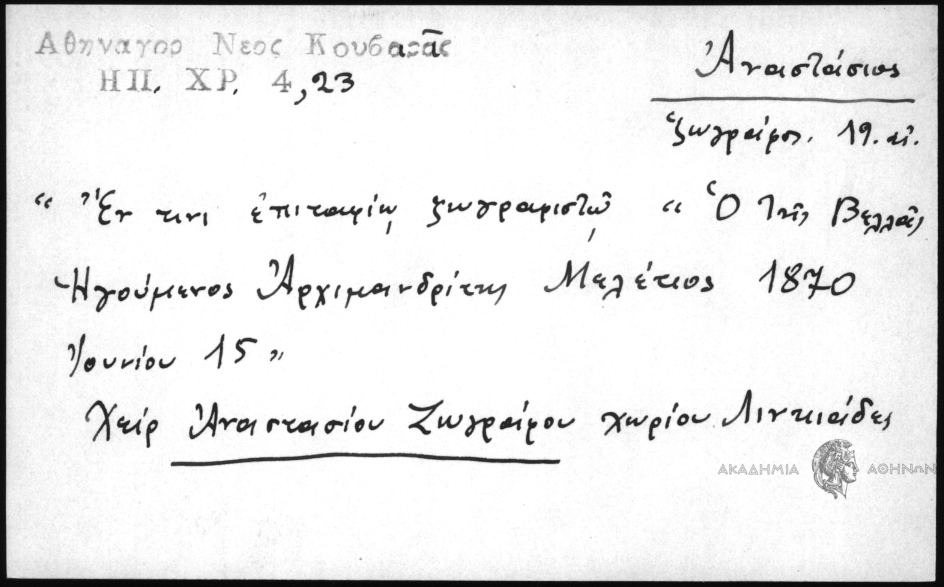 Αθηναγορ Νεος Κουβαρᾶς
ΗΠ. ΧΡ. 4,23
Ἀναστάσιος
ζωγράφος. 19. αἰ.
“ Ἔν τινι ἐπιταφίῳ ζωγραφιστῷ “ Ὁ τῆς Βελλᾶς
Ἡγούμενος Ἀρχιμανδρίτης Μελέτιος 1870
Ἰουνίου 15 „
Χείρ Ἀναστασίου Ζωγράφου χωρίου Λιντζιάδες
ΑΚΑΔΗΜΙΑ ΑΘΗΝΩΝ